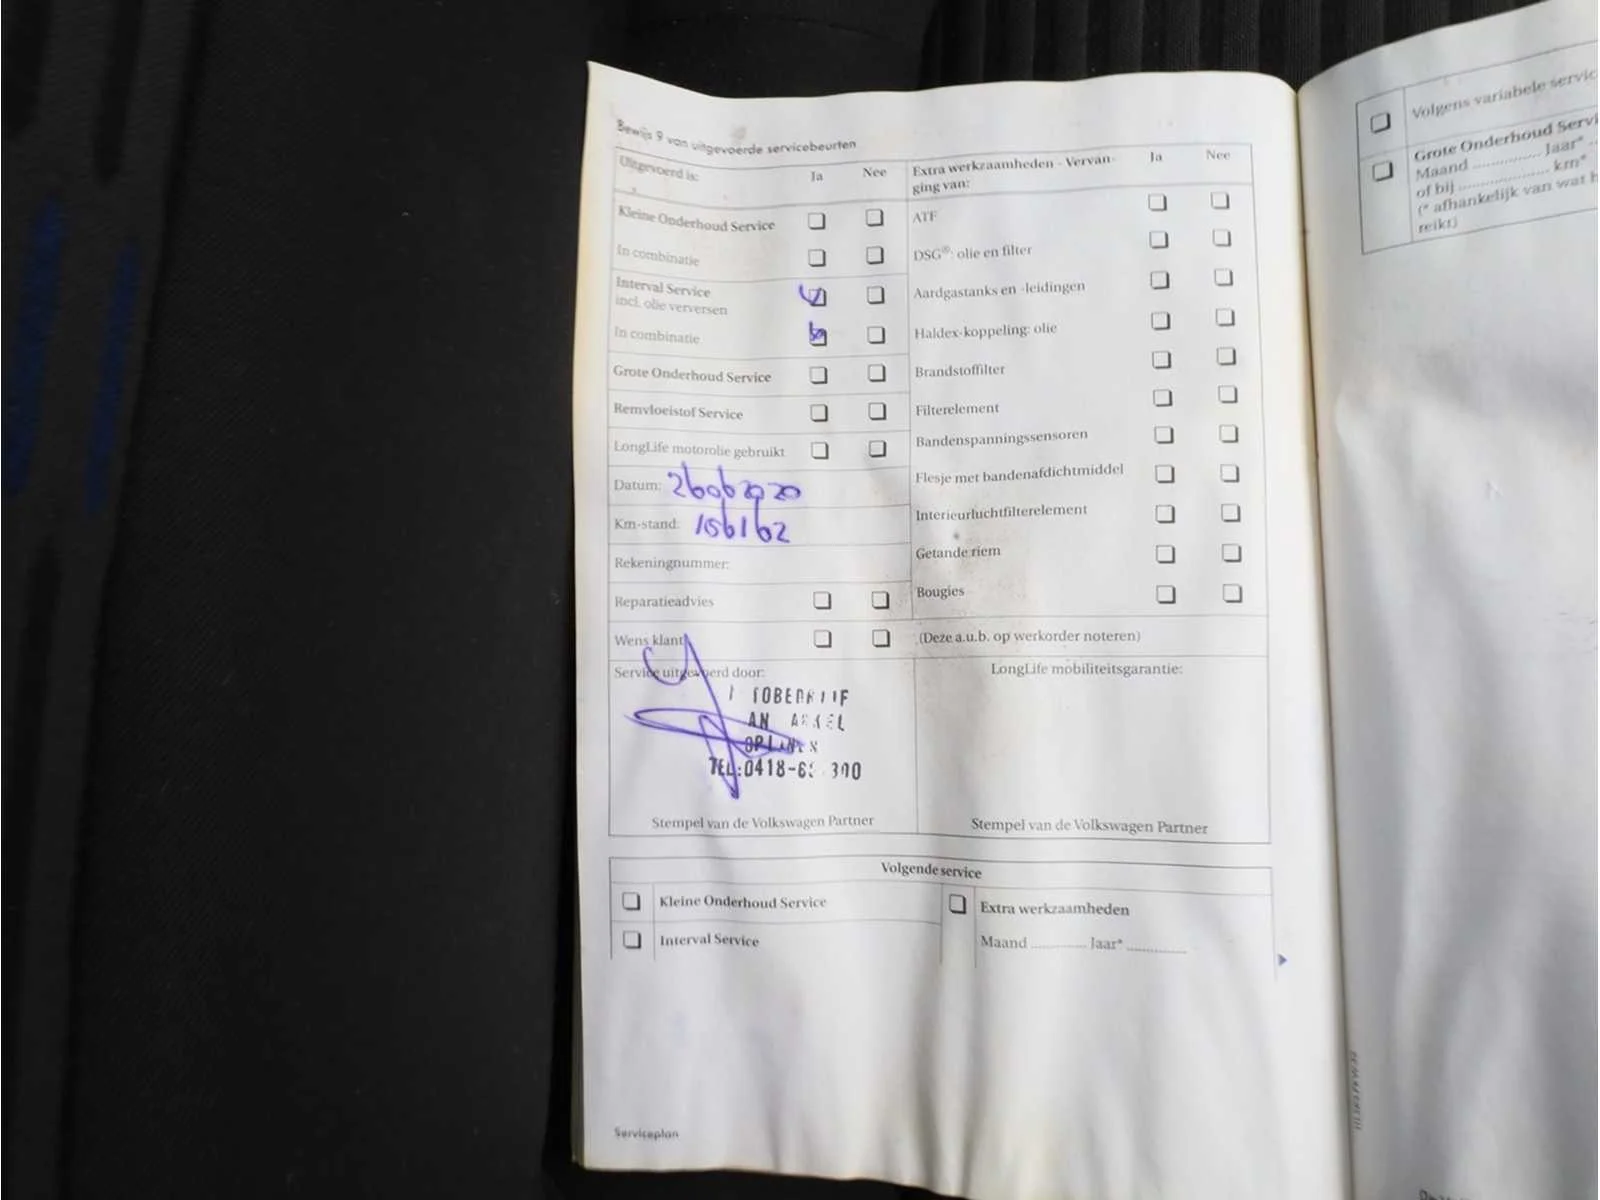 Bewijs 9 van uitgevoerde servicebeurten
Uitgevoerd is: Ja Nee
Kleine Onderhoud Service
In combinatie
Interval Service
incl. olie verversen
In combinatie
Grote Onderhoud Service
Remvloeistof Service
LongLife motorolie gebruikt
Datum: 26062020
Km-stand: 156162
Rekeningnummer:
Reparatieadvies
Wens klant
Service uitgevoerd door:
TEL:0418-6
Stempel van de Volkswagen Partner
Extra werkzaamheden - Vervan-
ging van: Ja Nee
ATF
DSG®: olie en filter
Aardgastanks en -leidingen
Haldex-koppeling: olie
Brandstoffilter
Filterelement
Bandenspanningssensoren
Flesje met bandenafdichtmiddel
Interieurluchtfilterelement
Getande riem
Bougies
(Deze a.u.b. op werkorder noteren)
LongLife mobiliteitsgarantie:
Stempel van de Volkswagen Partner
Volgende service
Kleine Onderhoud Service
Interval Service
Extra werkzaamheden
Maand ............. Jaar* ...............
Serviceplan
Volgens variabele servic
Grote Onderhoud Servi
Maand ............... Jaar*
of bij .................... km*
(* afhankelijk van wat h
reikt)